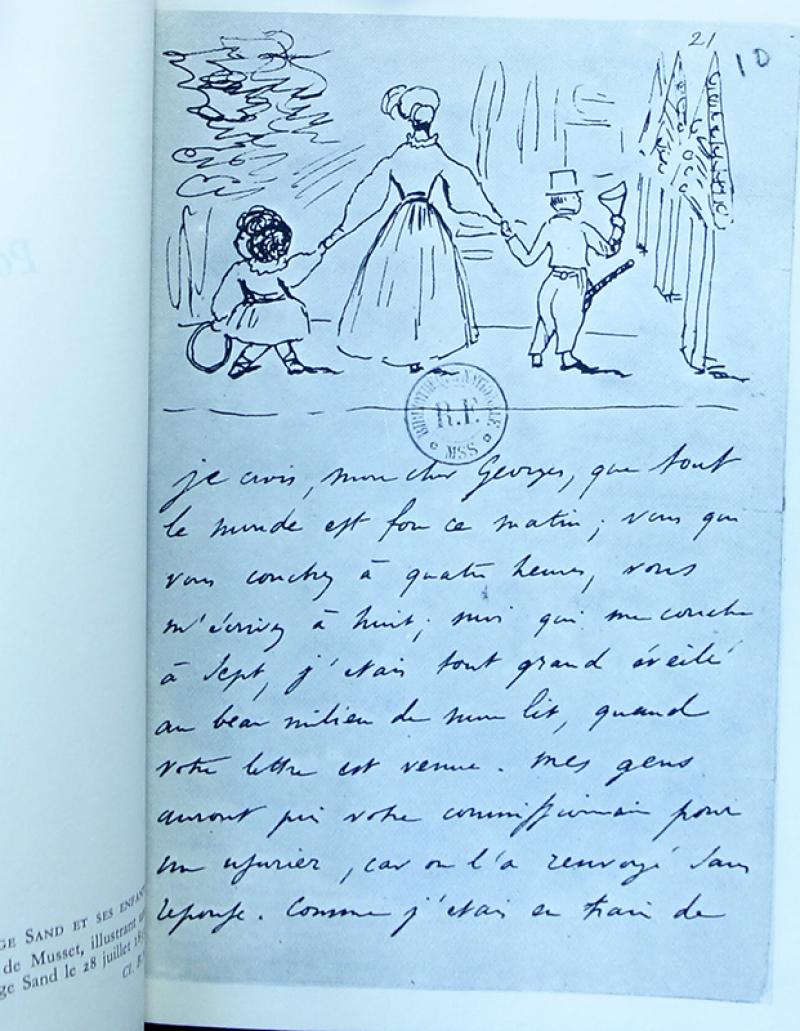 21
10
BIBLIOTHEQUE NATIONALE
R.F.
MSS
je crois, mon cher Georges, que tout
le monde est fou ce matin ; vous qui
vous couchez à quatre heures, vous
m'écrivez à huit ; moi qui me couche
à Sept, j'étais tout grand éveillé
au beau milieu de mon lit, quand
votre lettre est venue. Mes gens
auront pris votre commissionnaire pour
un usurier, car on l'a renvoyé Sans
reponse. Comme j'étais en train de
GE SAND ET SES ENFANT
de Musset, illustrant
ge Sand le 28 juillet 18
Cl. B